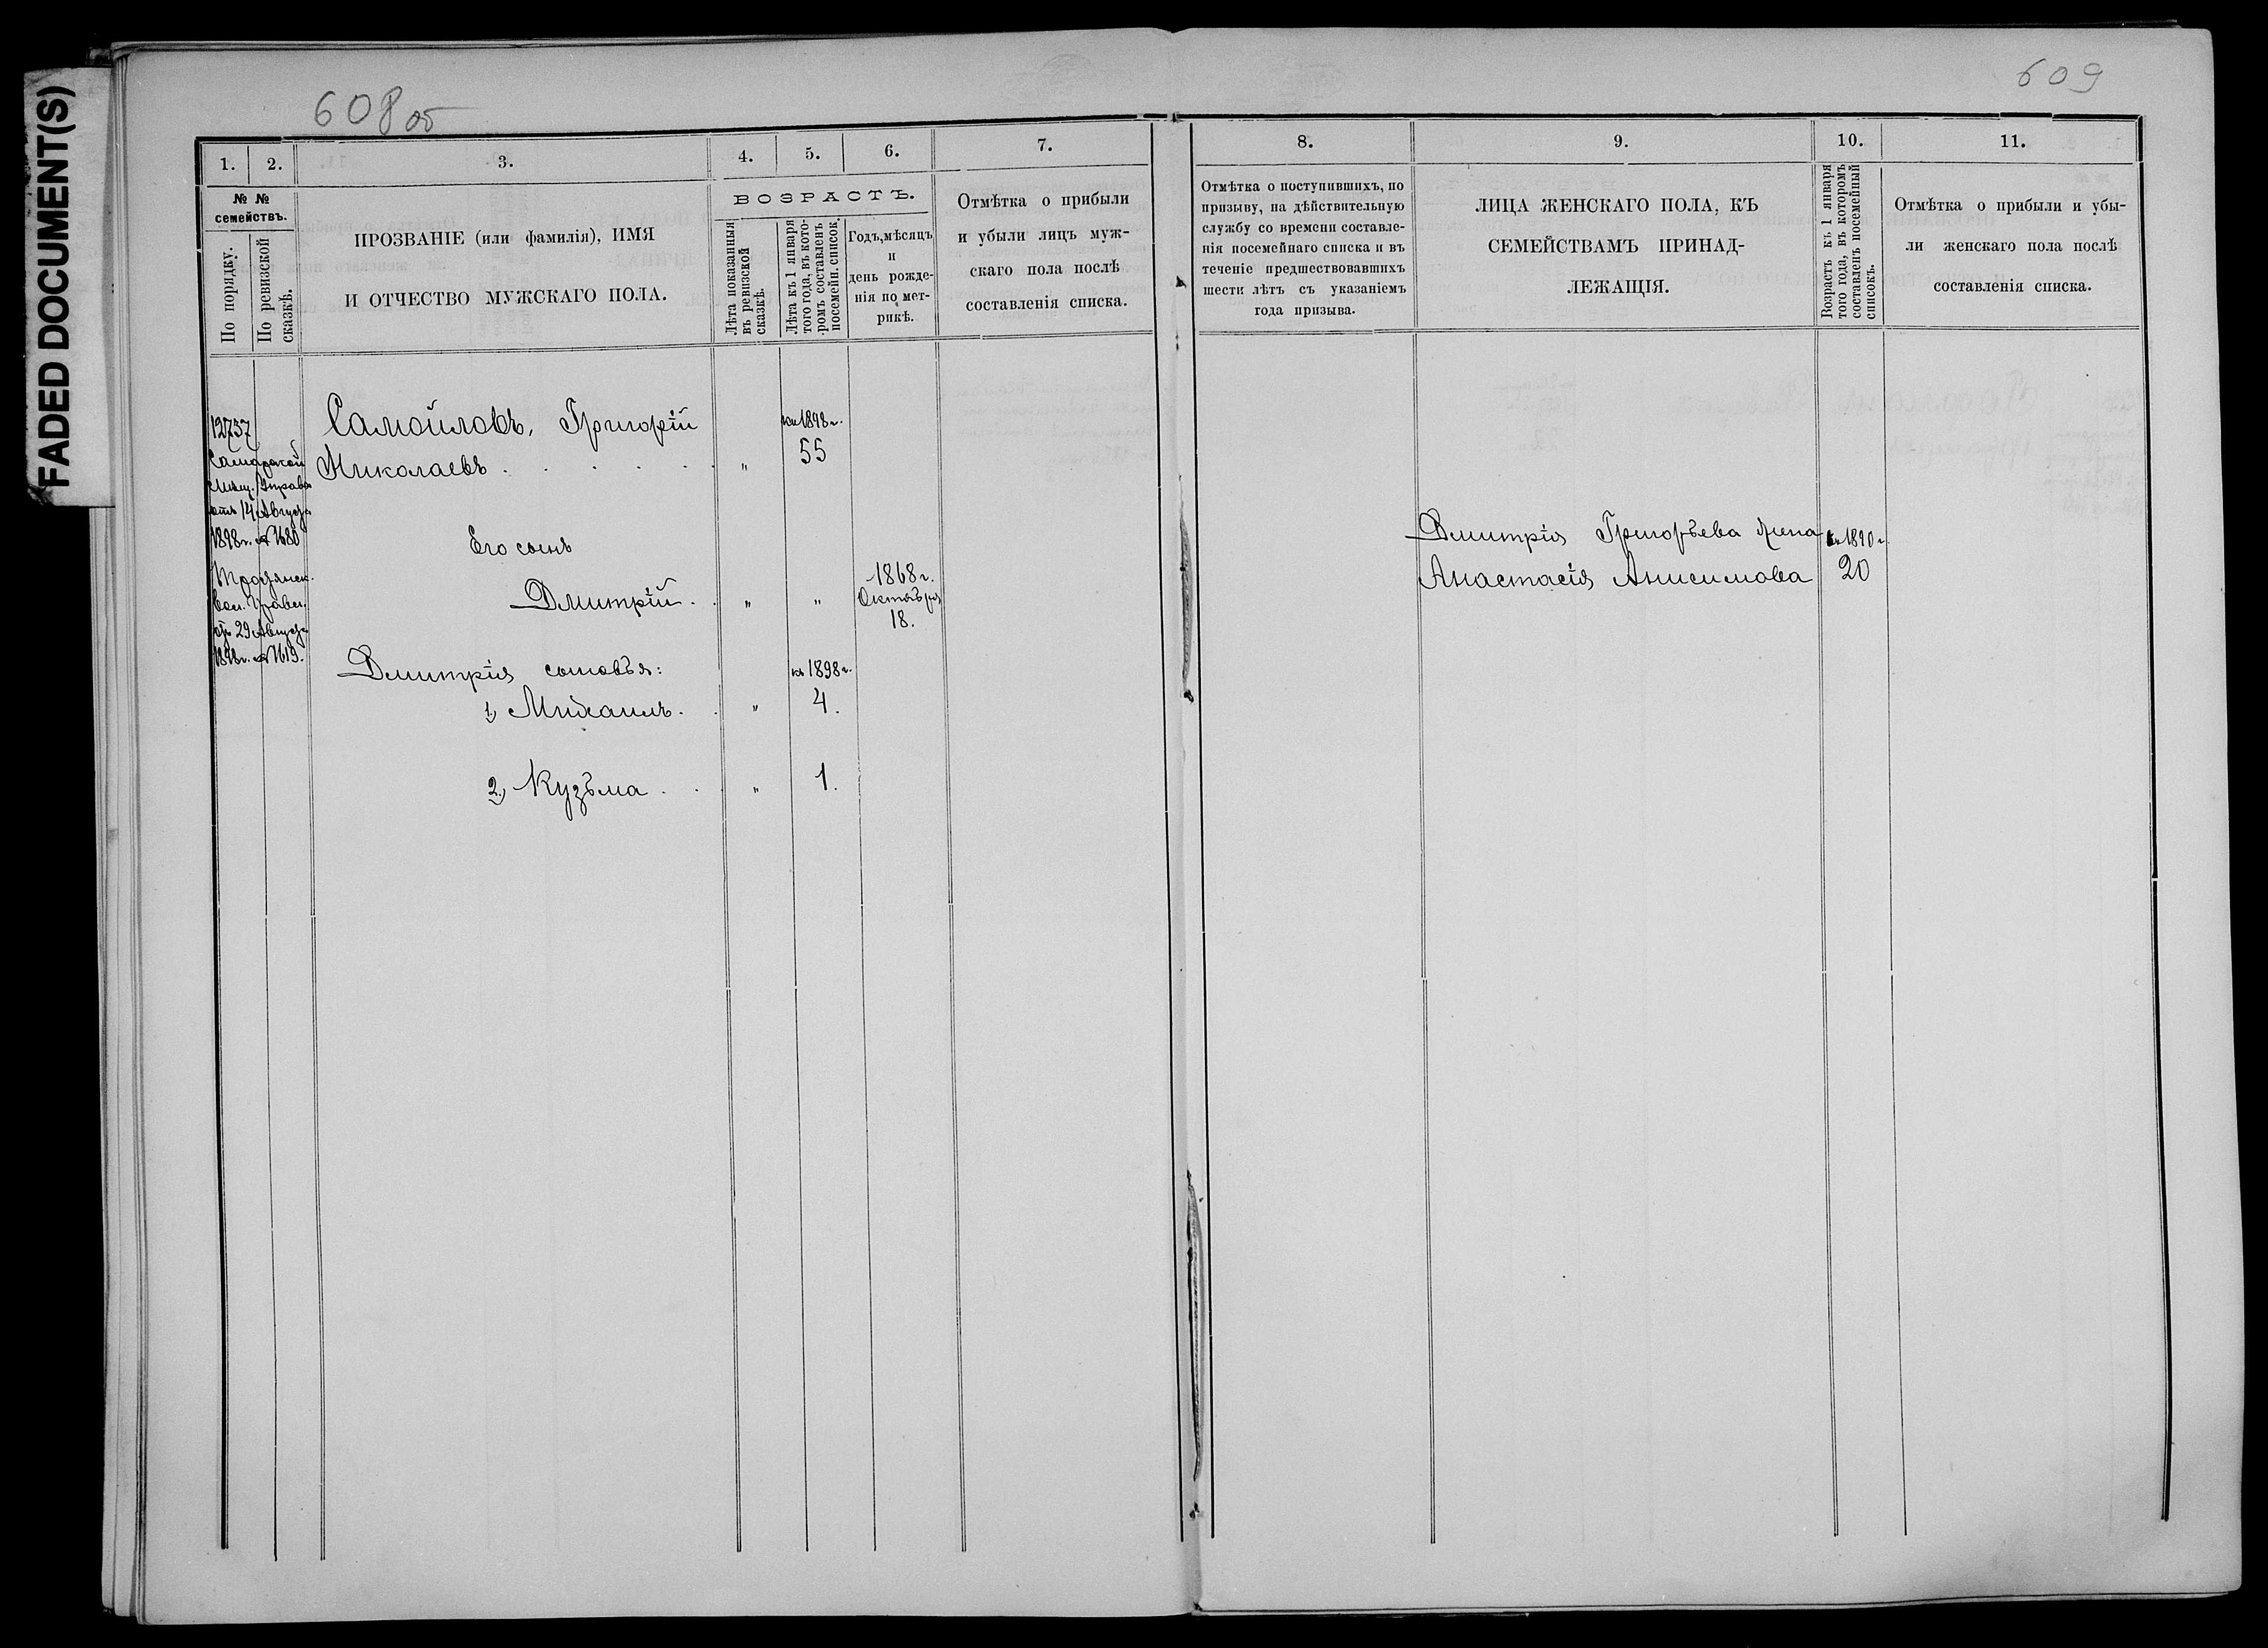 FADED DOCUMENT(S)
608 об
609
1.
2.
3.
4.
5.
6.
7.
№ №
семействъ.
По порядку.
По ревизской
сказкѣ.
ПРОЗВАНІЕ (или фамилія), ИМЯ
И ОТЧЕСТВО МУЖСКАГО ПОЛА.
ВОЗРАСТЪ.
Лѣта показанныя
въ ревизской
сказкѣ.
Лѣта къ 1 января
того года, въ кото-
ромъ составленъ
посемейн. список.
Годъ, мѣсяцъ
и
день рожде-
нія по мет-
рикѣ.
Отмѣтка о прибыли
и убыли лицъ муж-
скаго пола послѣ
составленія списка.
12737
Самарской
Мѣщ. Управы
отъ 14 Августа
1898 г. № 1680
вол. Правл.
отъ 29 Августа
1898 г. № 1619.
Самойловъ, Григорій
Николаевъ . . . . . „
къ 1898 г.
55
Его сынъ
Дмитрій . . „ „
1868 г.
Октября
18.
Дмитрія сыновья:
къ 1898 г.
1) Михаилъ . . „ 4.
2) Кузьма . . . „ 1.
8.
9.
10.
11.
Отмѣтка о поступившихъ, по
призыву, на дѣйствительную
службу со времени составле-
нія посемейнаго списка и въ
теченіе предшествовавшихъ
шести лѣтъ съ указаніемъ
года призыва.
ЛИЦА ЖЕНСКАГО ПОЛА, КЪ
СЕМЕЙСТВАМЪ ПРИНАД-
ЛЕЖАЩІЯ.
Возрастъ къ 1 января
того года, въ которомъ
составленъ посемейный
списокъ.
Отмѣтка о прибыли и убы-
ли женскаго пола послѣ
составленія списка.
Дмитрія Григорьева жена
Анастасія Анисимова
къ 1890 г.
20